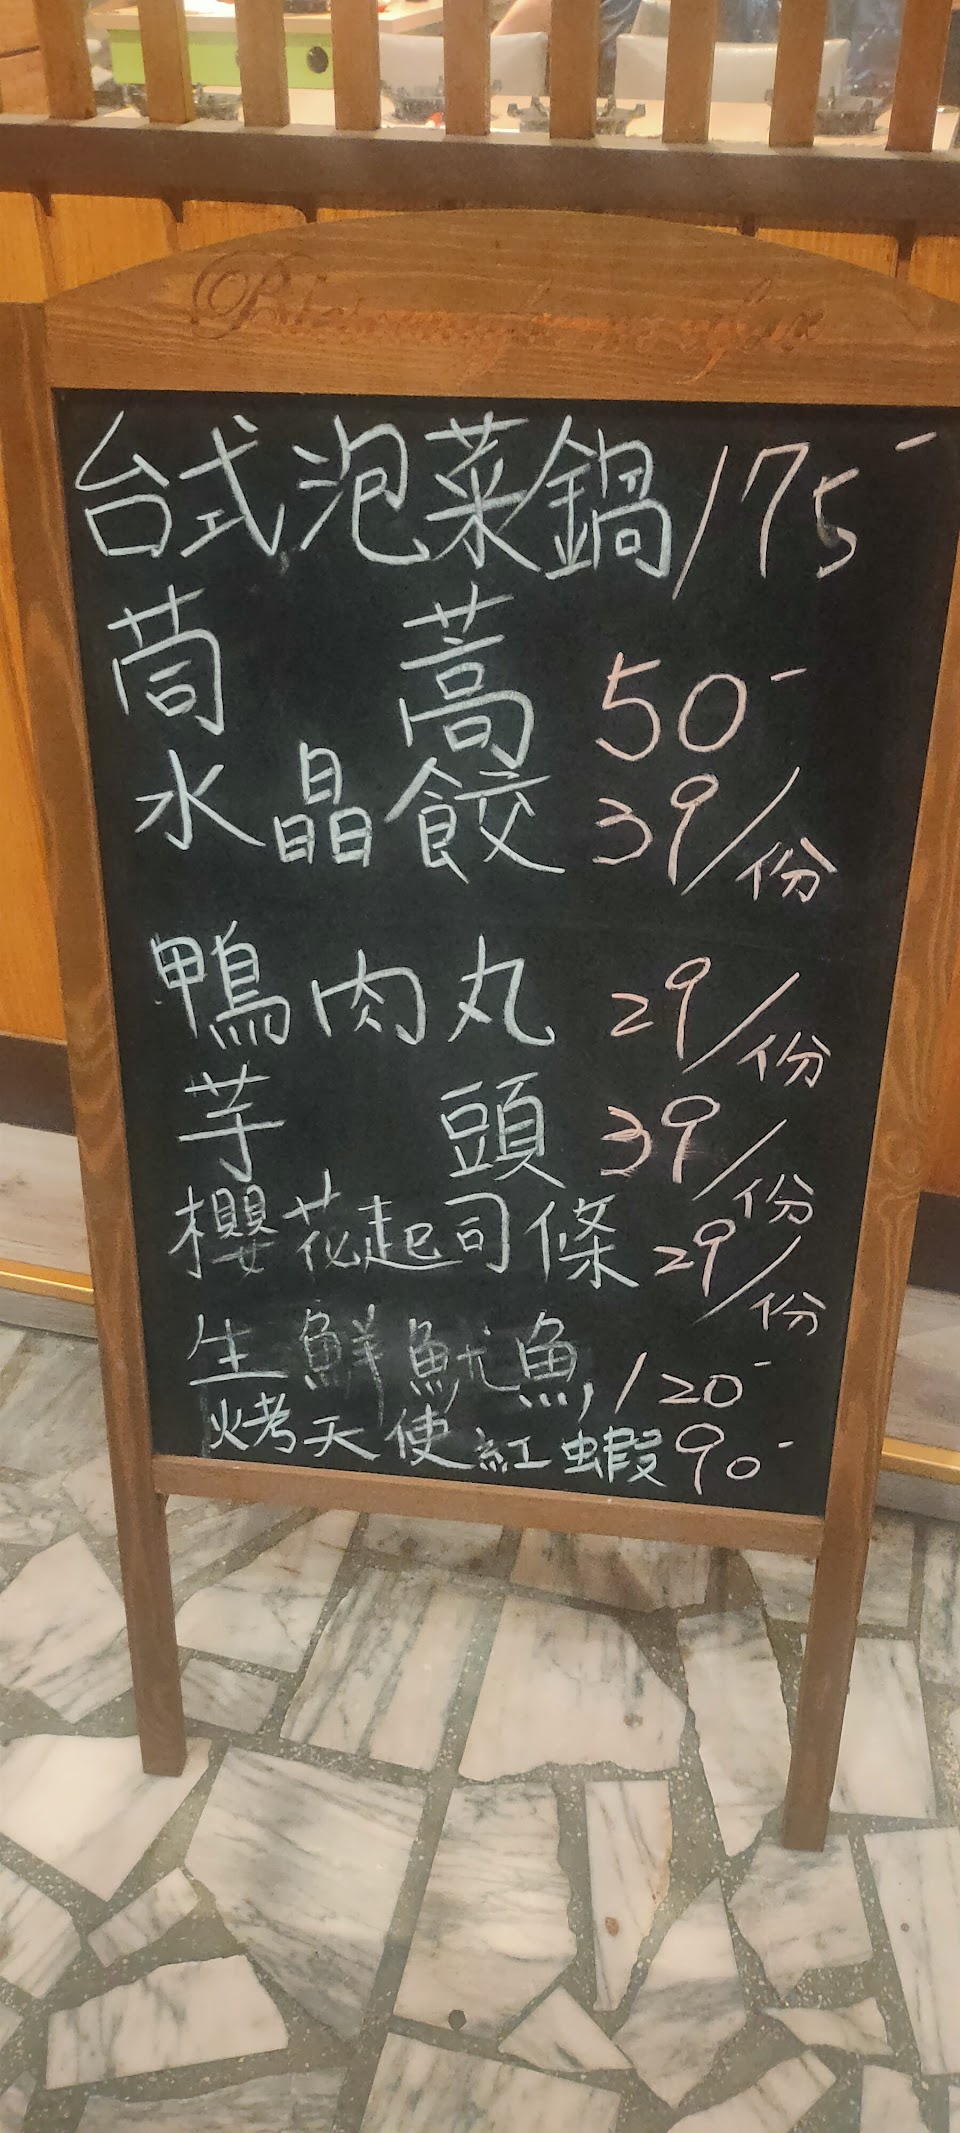 台式泡菜鍋175-
茼蒿50-
水晶餃39/份
鴨肉丸29/份
芋頭39/份
櫻花起司條29/份
生鮮魷魚120-
烤天使紅蝦90-